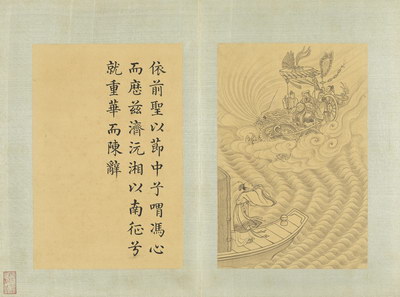 依前聖以節中兮喟馮心
而歷茲濟沅湘以南征兮
就重華而陳辭